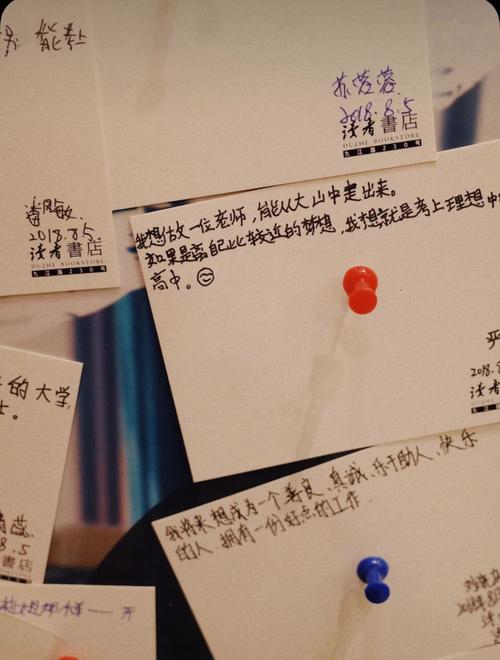 能考上
苏蓉蓉
2018.8.5
读者書店
DUZHE BOOKSTORE
九江路230号
2018.8.5
读者書店
DUZHE BOOKSTORE
九江路230号
我想做一位老师,能从大山中走出来。
如果是离自己比较近的梦想,我想就是考上理想中
高中。
2018.8
读者
的大学,
8.5
書店
我将来想成为一个善良、真诚、乐于助人、快乐
的人.拥有一份好点的工作.